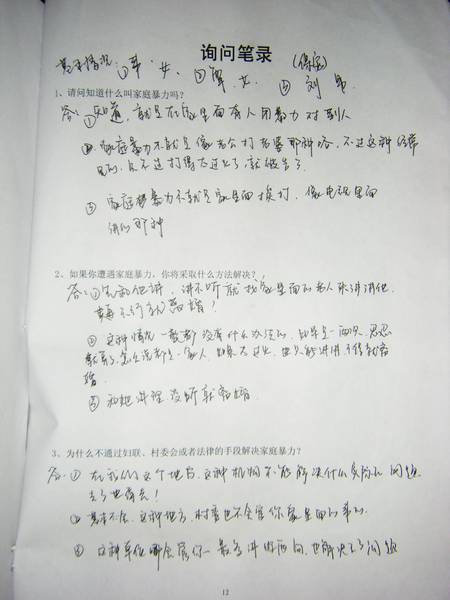 询问笔录
基本情况: ①辈、女 ②谭、女 ③刘 男
1、请问知道什么叫家庭暴力吗?
答: ①知道,就是在家里面有人用暴力对别人
②家庭暴力不就是像老公打老婆那种咯,不过这种经常
见的,只不过打得太过火了就被告了
③家庭暴力不就是家里面挨打,像电视里面
讲的那种
2、如果你遭遇家庭暴力,你将采取什么方法解决?
答: ①先和他讲,讲不听就找家里面的老人来讲讲他,
不行就离婚!
②这种情况一般都没有什么办法的,如果是一两次,忍忍
就算了,怎么说都是一家人,如果太过火,也只能讲讲,不行就离
婚
③和她讲理没听就离婚
3、为什么不通过妇联、村委会或者法律的手段解决家庭暴力?
答: ①在我们这个地方,这种机构不能解决什么实际的问题
去了也算是!
②基本不会,这种地方,村委也不会管你家里面的事的
③这种单位哪会管你,最多讲讲两句,也解决不了问题
12